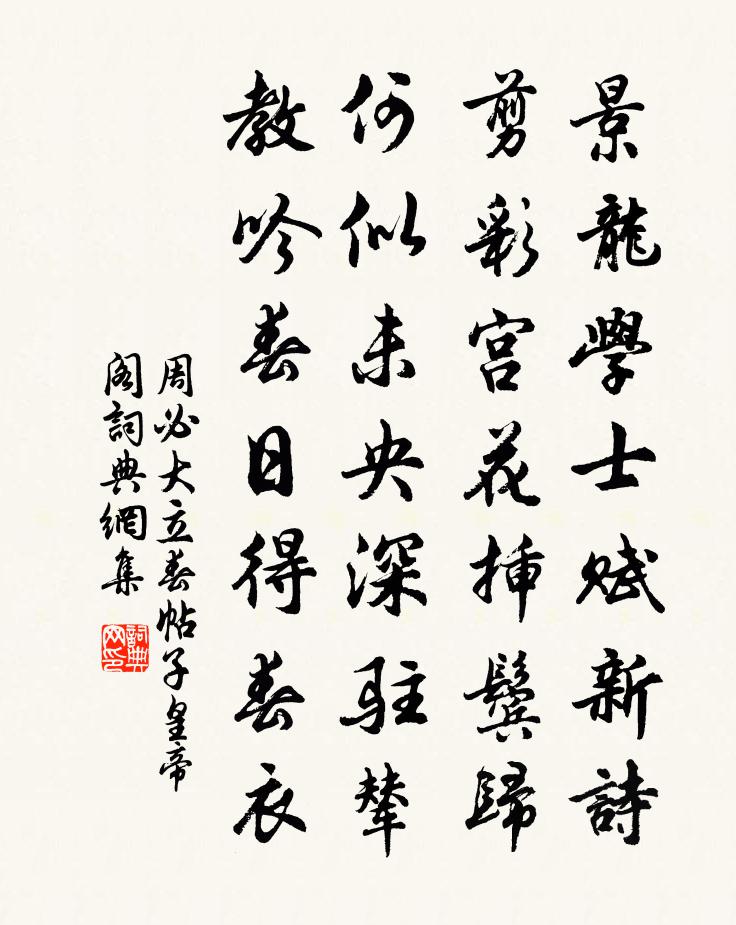 景龍學士賦新詩
剪彩宮花挿鬢歸
何似未央深駐輦
教吟春日得春衣
周必大立春帖子皇帝
阁詞典網集
詞典網印